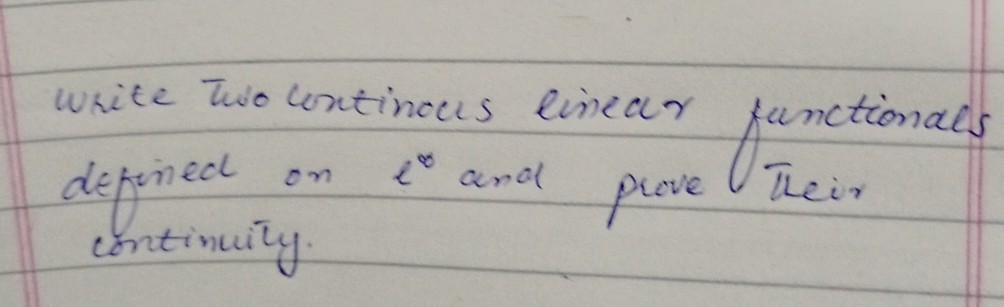 write Two continous linear functionals
defined on l∞ and prove Their
continuity.